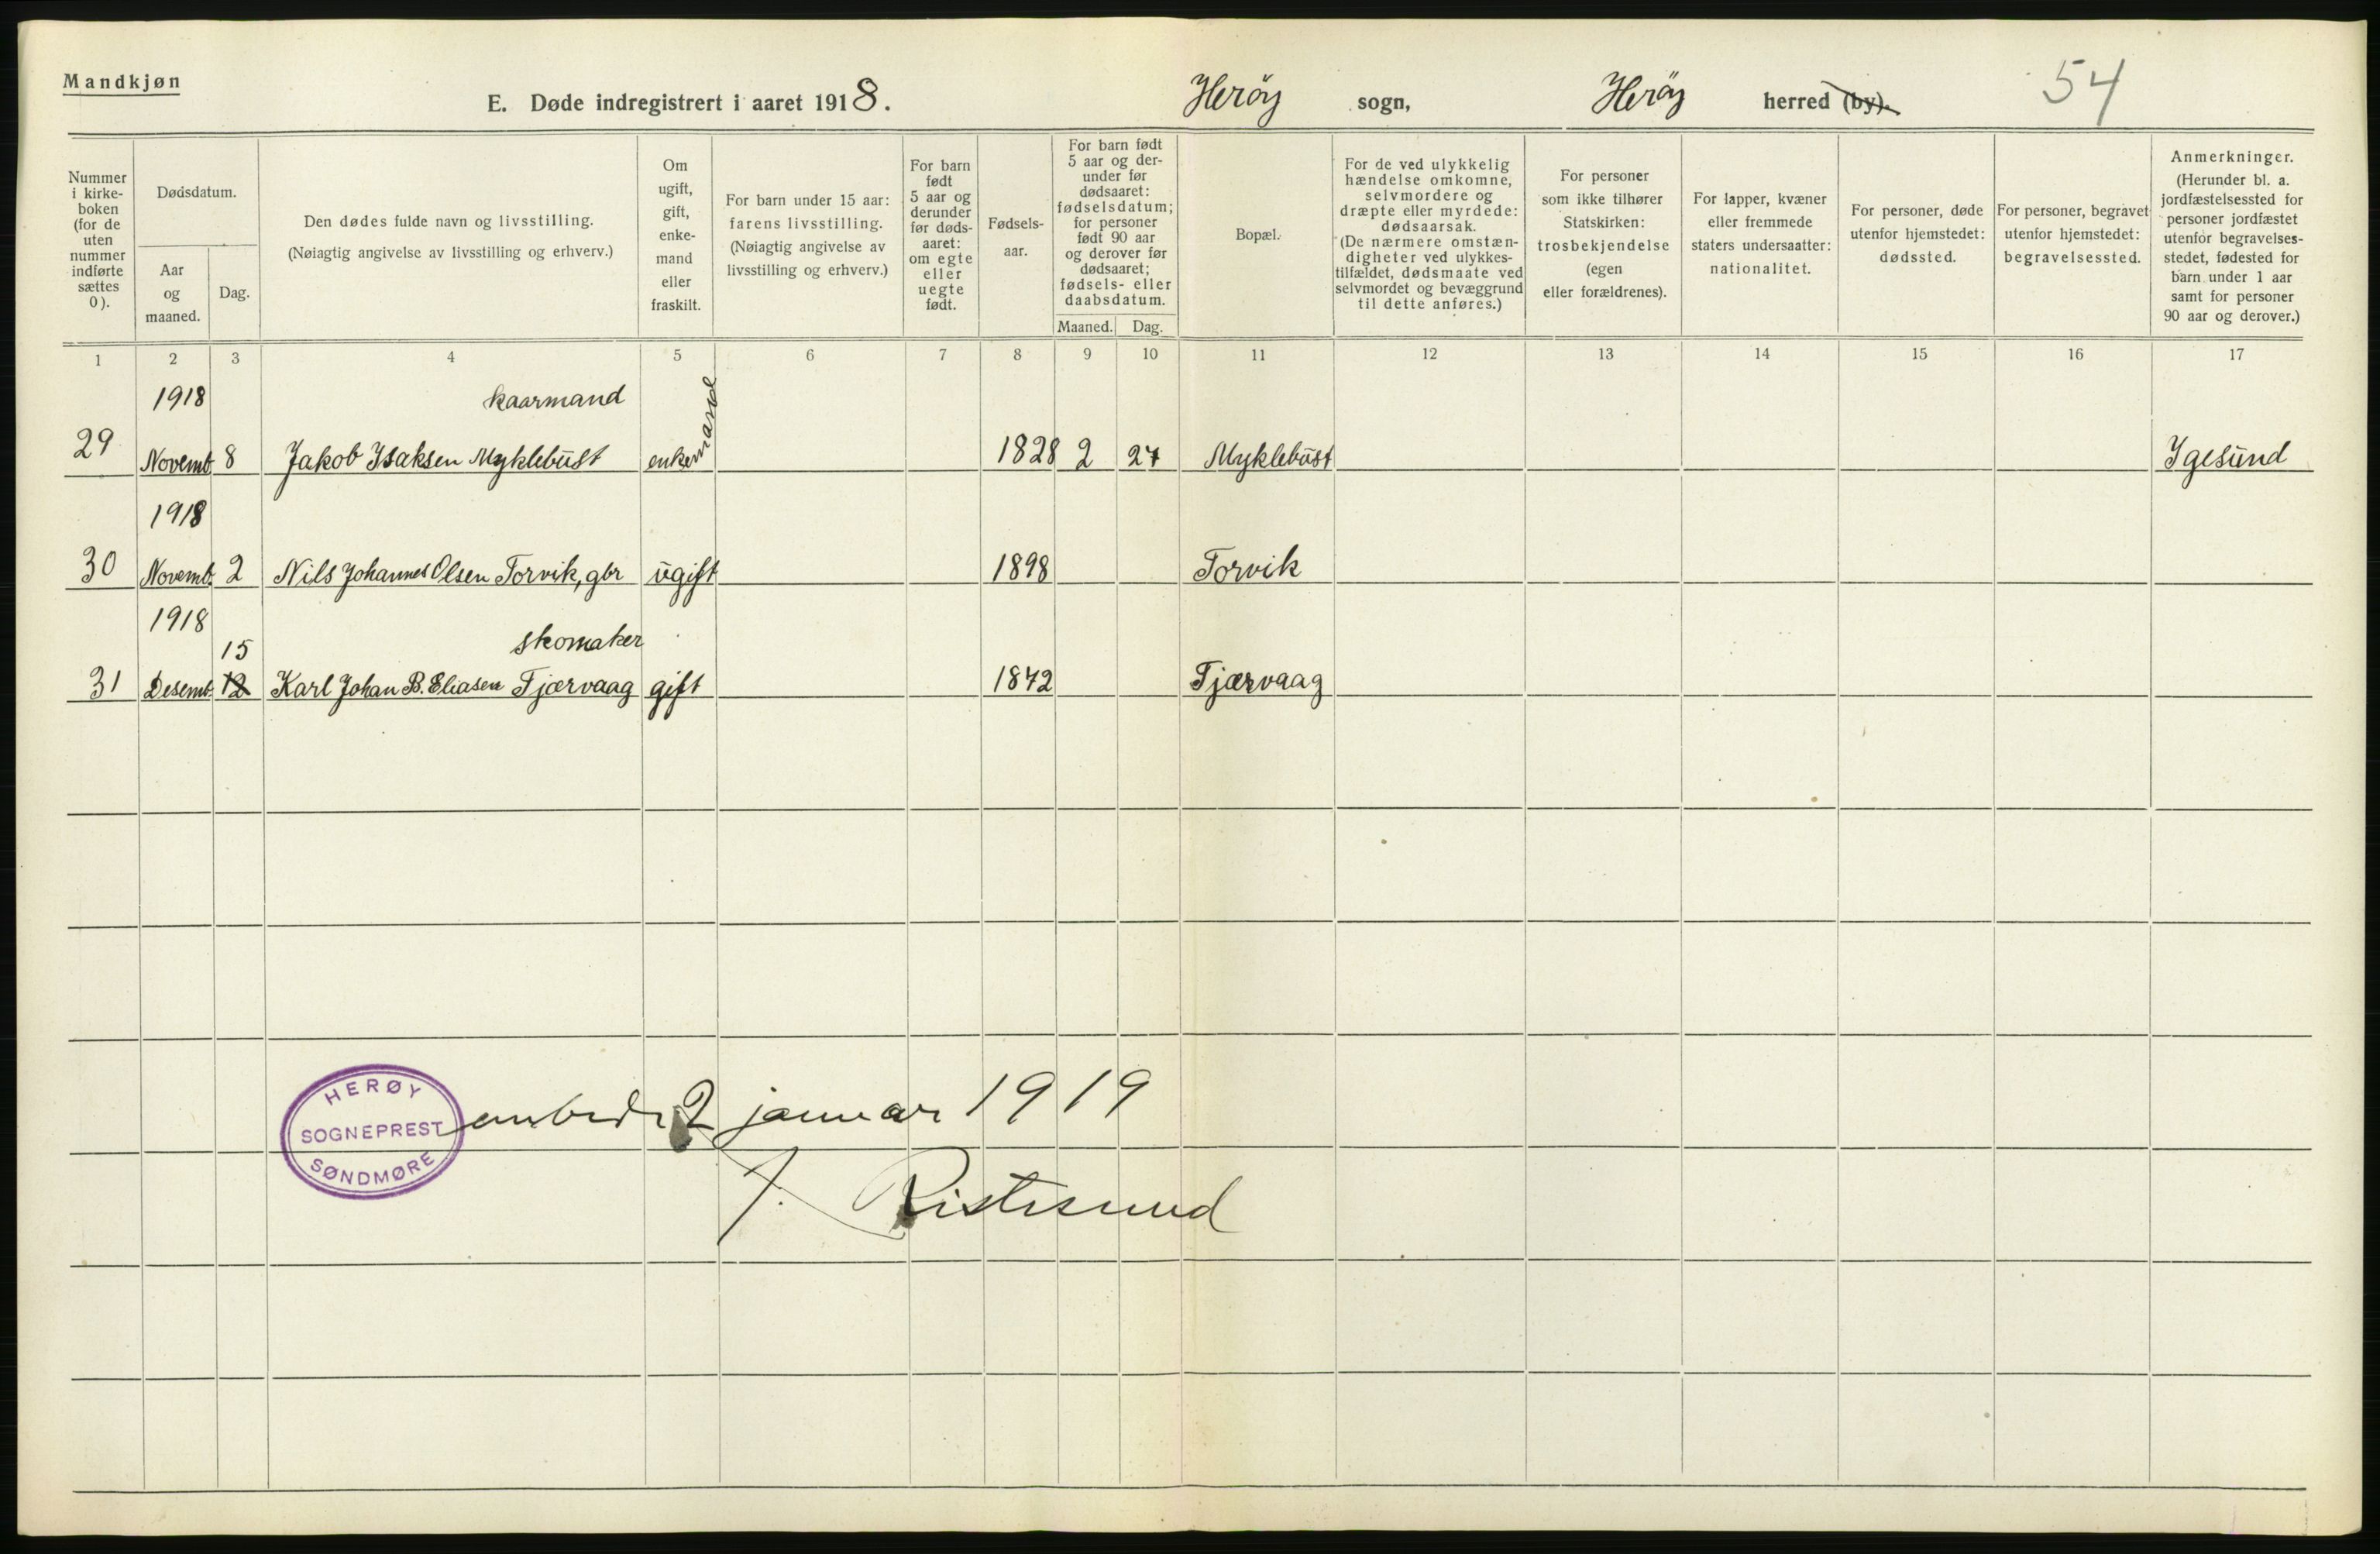 Mandkjøn
E. Døde indregistrert i aaret 1918. Herøy sogn, Herøy herred (by). 54
Nummer i kirke-boken (for de uten nummer indførte sættes 0).
Dødsdatum.
Aar og maaned.
Dag.
Den dødes fulde navn og livsstilling.
(Nøiagtig angivelse av livsstilling og erhverv.)
Om ugift, gift, enke-mand eller fraskilt.
For barn under 15 aar: farens livsstilling.
(Nøiagtig angivelse av livsstilling og erhverv.)
For barn født 5 aar og derunder før døds-aaret: om egte eller uegte født.
Fødsels-aar.
For barn født 5 aar og der-under før dødsaaret: fødselsdatum; for personer født 90 aar og derover før dødsaaret; fødsels- eller daabsdatum.
Maaned. Dag.
Bopæl.
For de ved ulykkelig hændelse omkomne, selvmordere og dræpte eller myrdede: dødsaarsak.
(De nærmere omstæn-digheter ved ulykkes-tilfældet, dødsmaate ved selvmordet og bevæggrund til dette anføres.)
For personer som ikke tilhører Statskirken: trosbekjendelse (egen eller forældrenes).
For lapper, kvæner eller fremmede staters undersaatter: nationalitet.
For personer, døde utenfor hjemstedet: dødssted.
For personer, begravet utenfor hjemstedet: begravelsessted.
Anmerkninger.
(Herunder bl. a. jordfæstelsessted for personer jordfæstet utenfor begravelses-stedet, fødested for barn under 1 aar samt for personer 90 aar og derover.)
1 2 3 4 5 6 7 8 9 10 11 12 13 14 15 16 17
1918 kaarmand
29 Novemb. 8 Jakob Isaksen Myklebust enkemand 1828 2 27 Myklebust Igesund
1918
30 Novemb. 2 Nils Johannes Olsen Torvik, gbr ugift 1898 Torvik
1918 15 skomaker
31 Desemb. 12 Karl Johan B. Eliasen Tjærvaag gift 1872 Tjærvaag
HERØY
SOGNEPREST
SØNDMØRE
2 januar 1919
J. Ristesund